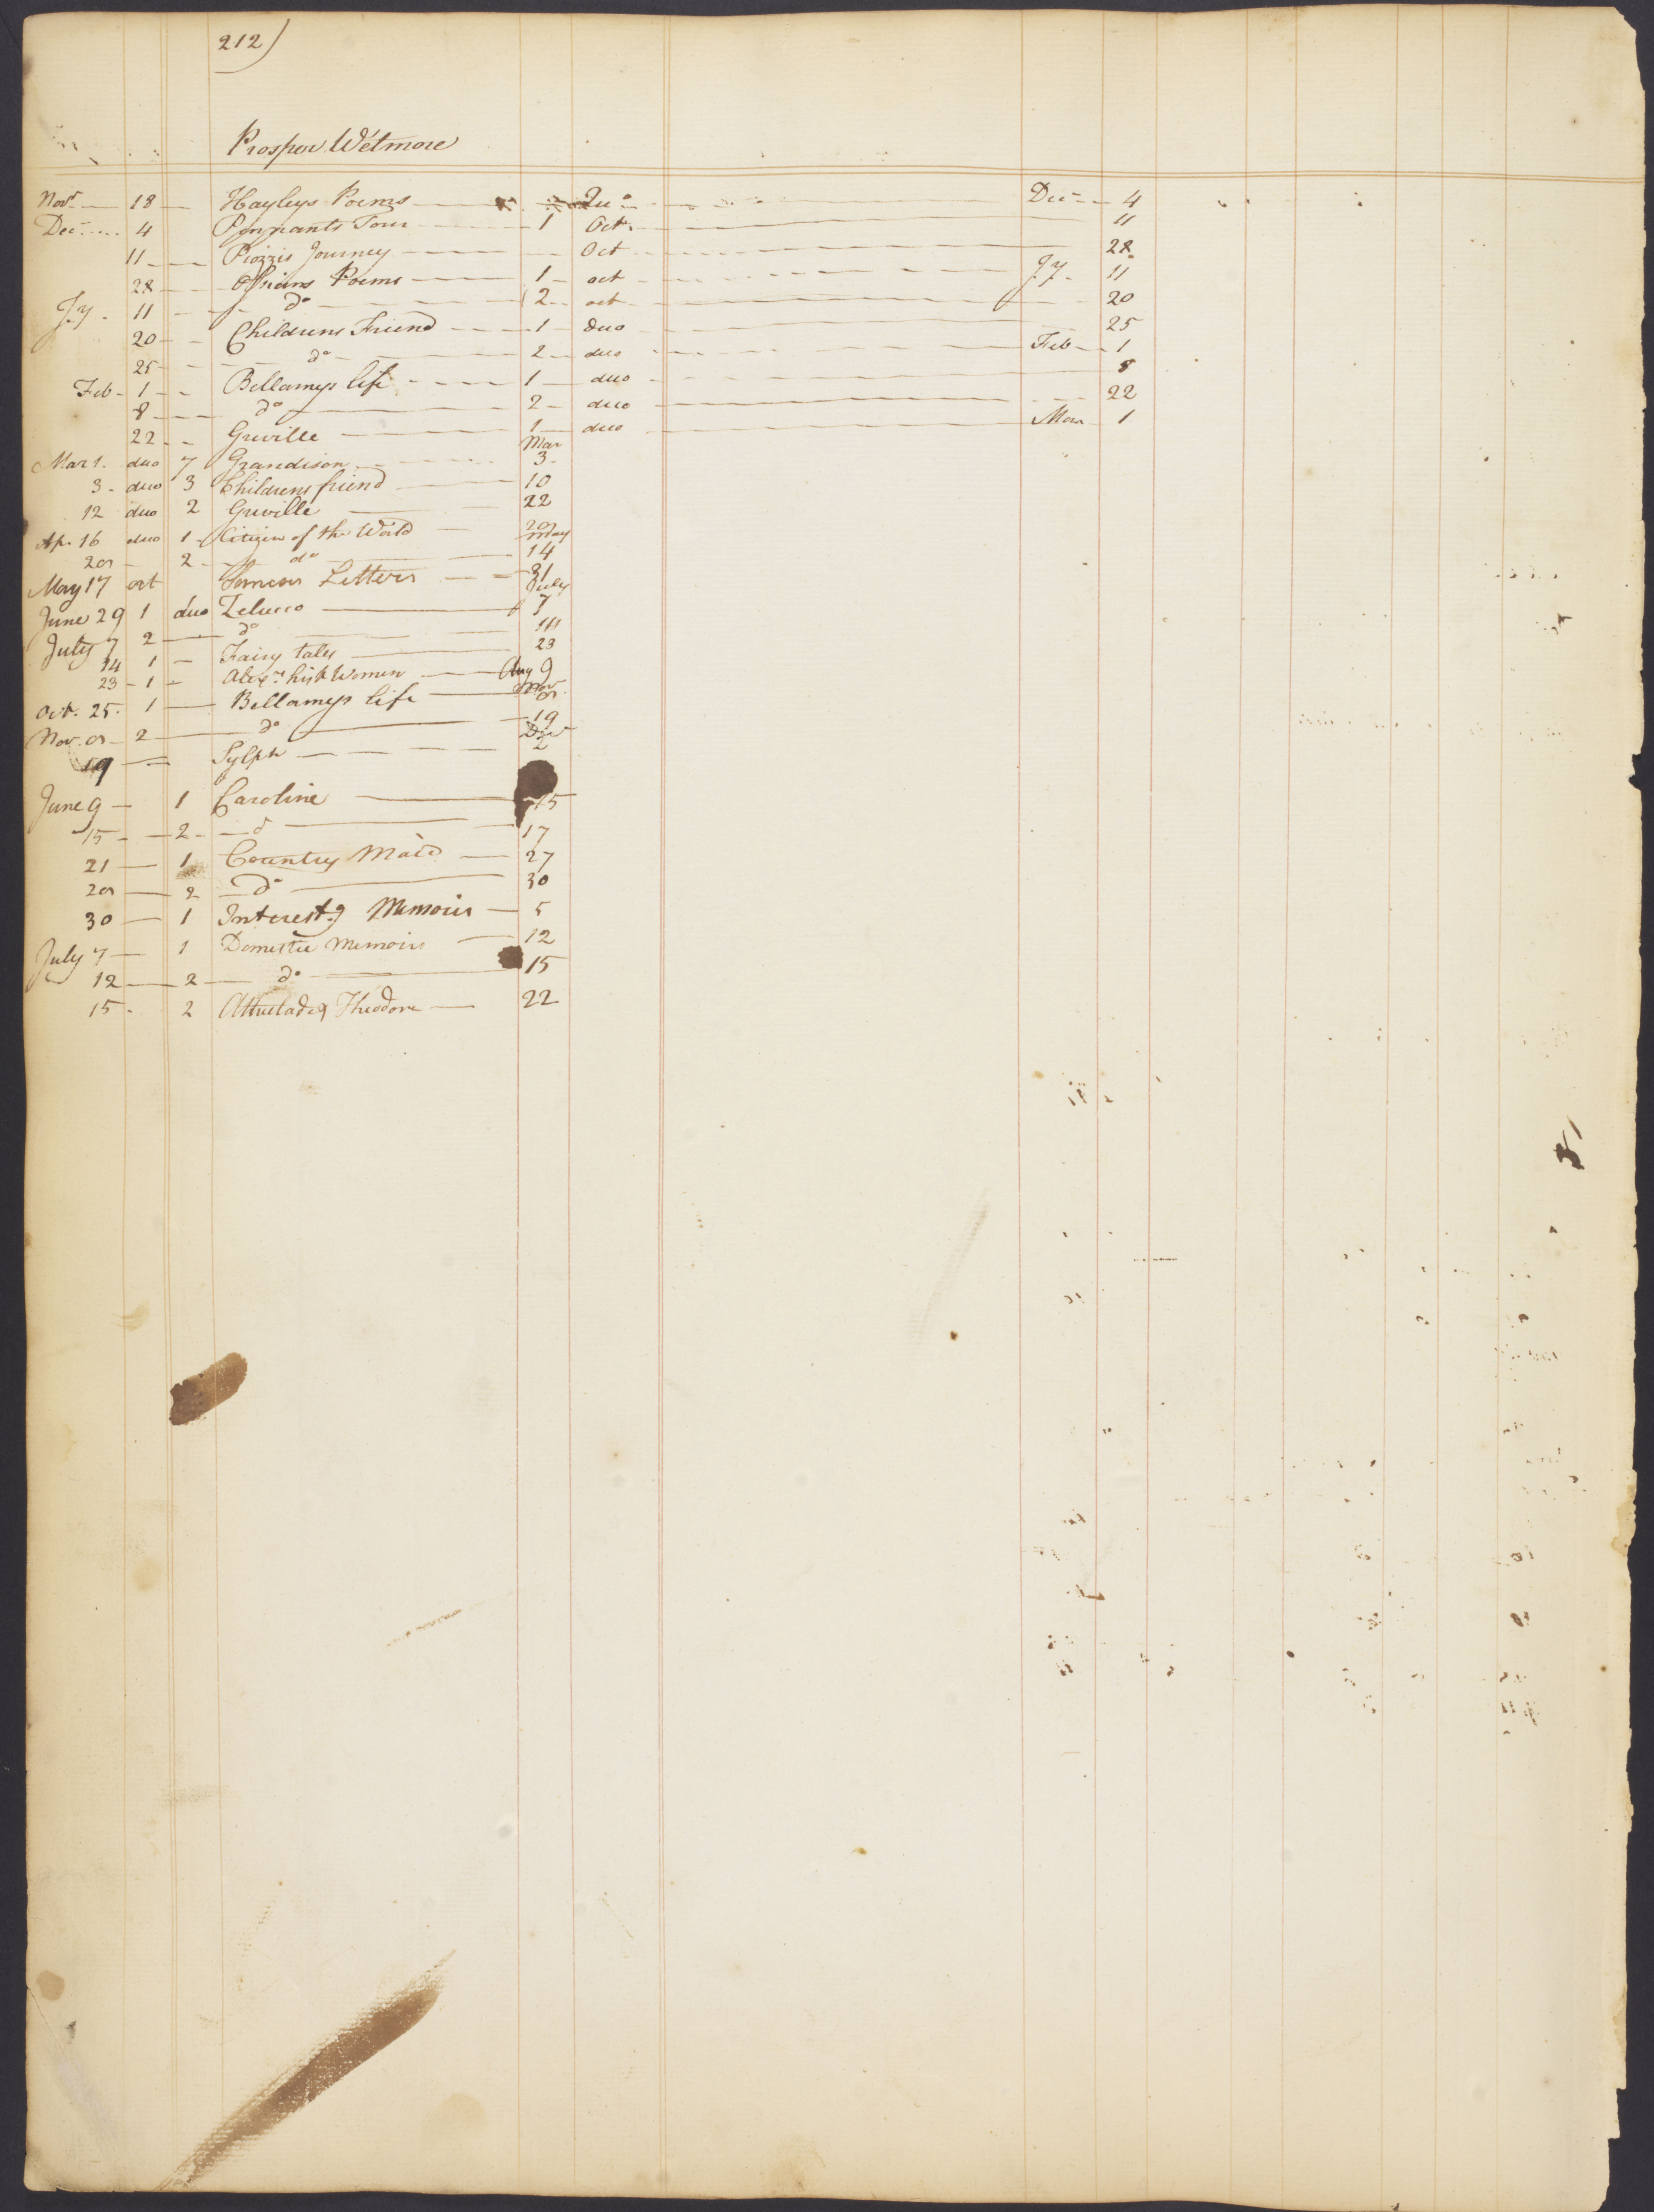 212)
Prosper Wetmore
Novr 18 Hayleys Poems Duo Decr 4
Decr 4 Pennants Tour 1 Oct. 11
11 Piozzis Journey Oct 28
28 Ossians Poems 1 oct Jy 11
Jy. 11 do 2 oct 20
20 Childrens Friend 1 duo 25
25 do 2 duo Feb 1
Feb 1 Bellamys life 1 duo 8
8 do 2 duo 22
22 Greville 1 duo Mar 1
Mar 1. duo 7 Grandison Mar 3
3 duo 3 Childrens friend 10
12 duo 2 Greville 22
Ap. 16 duo 1 Citizen of the World
2 do May 14
May 17 oct Letters 31
June 29 1 duo Zelucco July 7
July 7 2 do 14
14 1 Fairy tales 23
23 1 Alexrs hist Women Aug 9
Oct. 25. 1 Bellamys life Nov
Nov. 2 do 19
19 Sylph Dec 2
June 9 1 Caroline 15
15 2 do 17
21 1 Country Maid 27
2 do 30
30 1 Interestg Memoirs 5
July 7 1 Domestic Memoirs 12
12 2 do 15
15 2 Theodore 22